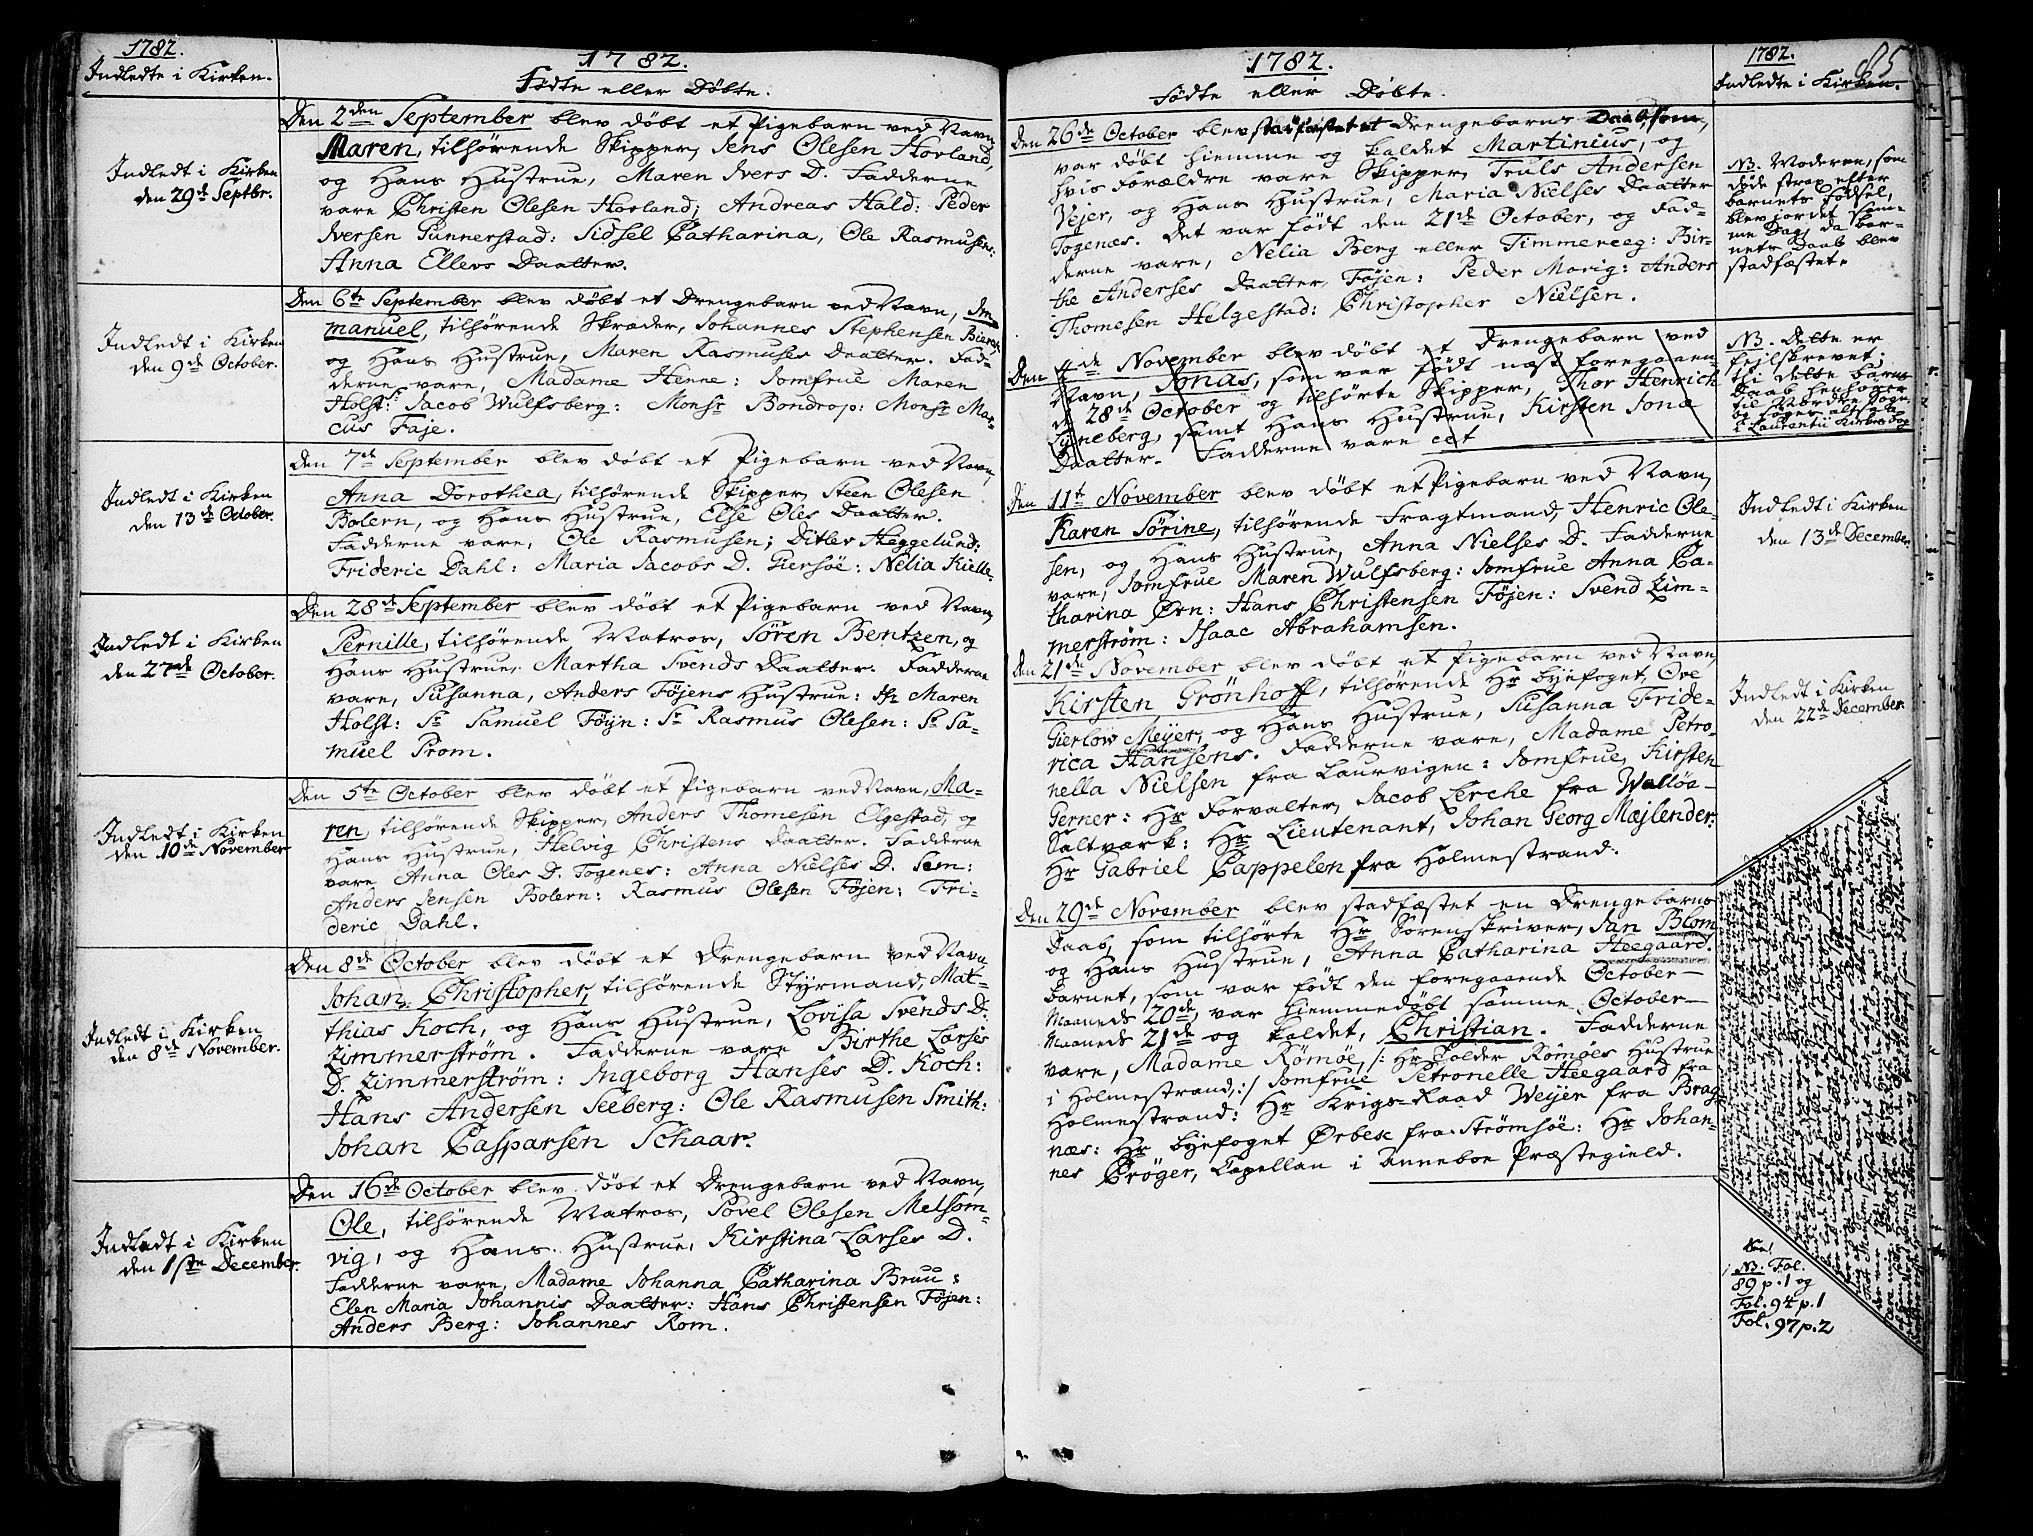 1782.
Indledte i Kirken.
1782.
Fødte eller Døbte.
Den 2den September blev døbt et Pigebarn ved Navn,
Maren, tilhørende Skipper, Jens Olesen Hovland,
og Hans Hustrue, Maren Ivers D. Fadderne
vare Christen Olesen Hovland; Andreas Hald: Peder
Iversen Gunnerstad: Sidsel Catharina, Ole Rasmusens:
Anna Ellevs Daatter.
Indledt i Kirken
den 29de Septbr.
Den 6te September blev døbt et Drengebarn ved Navn, Im-
manuel, tilhørende Skræder, Johannes Stephensen
og Hans Hustrue, Maren Rasmuses Daatter. Fad-
derne vare, Madame Henne: Jomfrue Maren
Holst: Jacob Wulfsberg: Monsr Bondrop: Monsr Mar-
cus Faje.
Indledt i Kirken
den 9de October.
Den 7de September blev døbt et Pigebarn ved Navn,
Anna Dorothea, tilhørende Skipper, Steen Olesen
Bolern, og Hans Hustrue, Else Oles Daatter.
Fadderne vare, Ole Rasmusen; Ditlev Heggelund:
Frideric Dahl: Maria Jacobs D. Giersøe: Nelia Kielle.
Indledt i Kirken
den 13de October.
Den 28de September blev døbt et Pigebarn ved Navn,
Pernille, tilhørende Matros, Søren Bentzen, og
Hans Hustrue, Martha Svends Daatter. Fadderne
vare, Susanna, Anders Føjens Hustrue: Maren
Holst: Sr Samuel Føyn: Sr Rasmus Olesen: Sr Sa-
muel Prom.
Indledt i Kirken
den 27de October.
Den 5te October blev døbt et Pigebarn ved Navn, Ma-
ren, tilhørende Skipper, Anders Thomesen Elgestad, og
Hans Hustrue, Helvig Christens Daatter. Fadderne
vare Anna Oles D. Togenes: Anna Nielses D. Sem:
Anders Jensen Bolern: Rasmus Olesen Føjen: Fri-
deric Dahl.
Indledt i Kirken
den 10de November
Den 8de October blev døbt et Drengebarn ved Navn
Johan Christopher, tilhørende Styrmand, Mat-
thias Koch, og Hans Hustrue, Lovisa Svends D.
Zimmerstrøm. Fadderne vare Birthe Larses
D. Zimmerstrøm: Ingeborg Hanses D. Koch:
Hans Andersen Seeberg: Ole Rasmusen Smith:
Johan Casparsen Schaar.
Indledt i Kirken
den 8de November.
Den 16de October blev døbt et Drengebarn ved Navn,
Ole, tilhørende Matros, Povel Olesen Melsom-
vig, og Hans Hustrue, Kirstina Larses D.
Fadderne vare, Madame Johanna Catharina Bruu:
Elen Maria Johannis Daatter: Hans Christensen Føjen:
Anders Berg: Johannes Rom.
Indledt i Kirken
den 1ste December.
1782.
Fødte eller Døbte.
1782.
Indledte i Kirken.
85
Den 26de October blev stadfæstet et Drengebarns Daab, som
var døbt hiemme og kaldet Martinius, og
hvis Forældre vare Skipper, Truls Andersen
Vejer, og Hans Hustrue, Maria Nielses Daatter
Togenæs. Det var født den 21de October, og Fad-
derne vare, Nelia Berg eller Timmereeg: Bir-
the Anderses Daatter, Føjen: Peder Morig: Anders
Thomesen Helgestad: Christopher Nielsen.
NB. Moderen, som
døde strax efter
barnets Fødsel,
blev jordet sam-
me Dag, da bar-
nets Daab blev
stadfæstet.
Den 4de November blev døbt et Drengebarn ved
Navn, Jonas, som var født næst foregaaen-
de 28de October og tilhørte Skipper, Thor Henrich
Lyneberg, samt Hans Hustrue, Kirsten Jonæ
Daatter. Fadderne vare cet
NB. Dette er
fejlskrevet;
thi dette barns
Daab henhører
til Nordre Sogn,
og søges altsaa
i Laurentii Kirkes Sogn
Den 11te November blev døbt et Pigebarn ved Navn,
Karen Sørine, tilhørende Fragtmand, Henric Ole-
sen, og Hans Hustrue, Anna Nielses D. Fadderne
vare, Jomfrue Maren Wulfsberg: Jomfrue Anna Ca-
tharina Ørn: Hans Christensen Føjen: Svend Zim-
merstrøm: Isaac Abrahamsen.
Indledt i Kirken
den 13de December.
Den 21de November blev døbt et Pigebarn ved Navn,
Kirsten Grønhoff, tilhørende Hr byefoget, Ove
Gierløw Meyer, og Hans Hustrue, Susanna Fride-
rica Hansens. Fadderne vare, Madame Petro-
nella Nielsen fra Laurvigen: Jomfrue, Kirsten
Gerner: Hr Forvalter, Jacob Lerche fra Walløe-
Saltværk: Hr Lieutenant, Johan Georg Mæjlender:
Hr Gabriel Cappelen fra Holmestrand.
Indledt i Kirken
den 22de December.
Den 29de November blev stadfæstet en Drengebarns
Daab, som tilhørte Hr Sorenskriver, Jan Blom
og Hans Hustrue, Anna Catharina Heegaard.
Barnet, som var født den foregaaende October-
Maaneds 20de, var hiemmedøbt samme October-
Maaneds 21de og kaldet, Christian. Fadderne
vare, Madame Rømøe, /: Hr Tolder Rømøes Hustrue
i Holmestrand, :/ Jomfrue Petronelle Heegaard fra
Holmestrand: Hr Krigs-Raad Weyer fra Brag-
næs: Hr byefoget Ørbek fra Strømsøe: Hr Johan-
nes Crøger, Capellan i Ramnes Præstegield.
NB. Fol.
89 p. 1 og
Fol. 94 p. 1
Fol. 97 p. 2